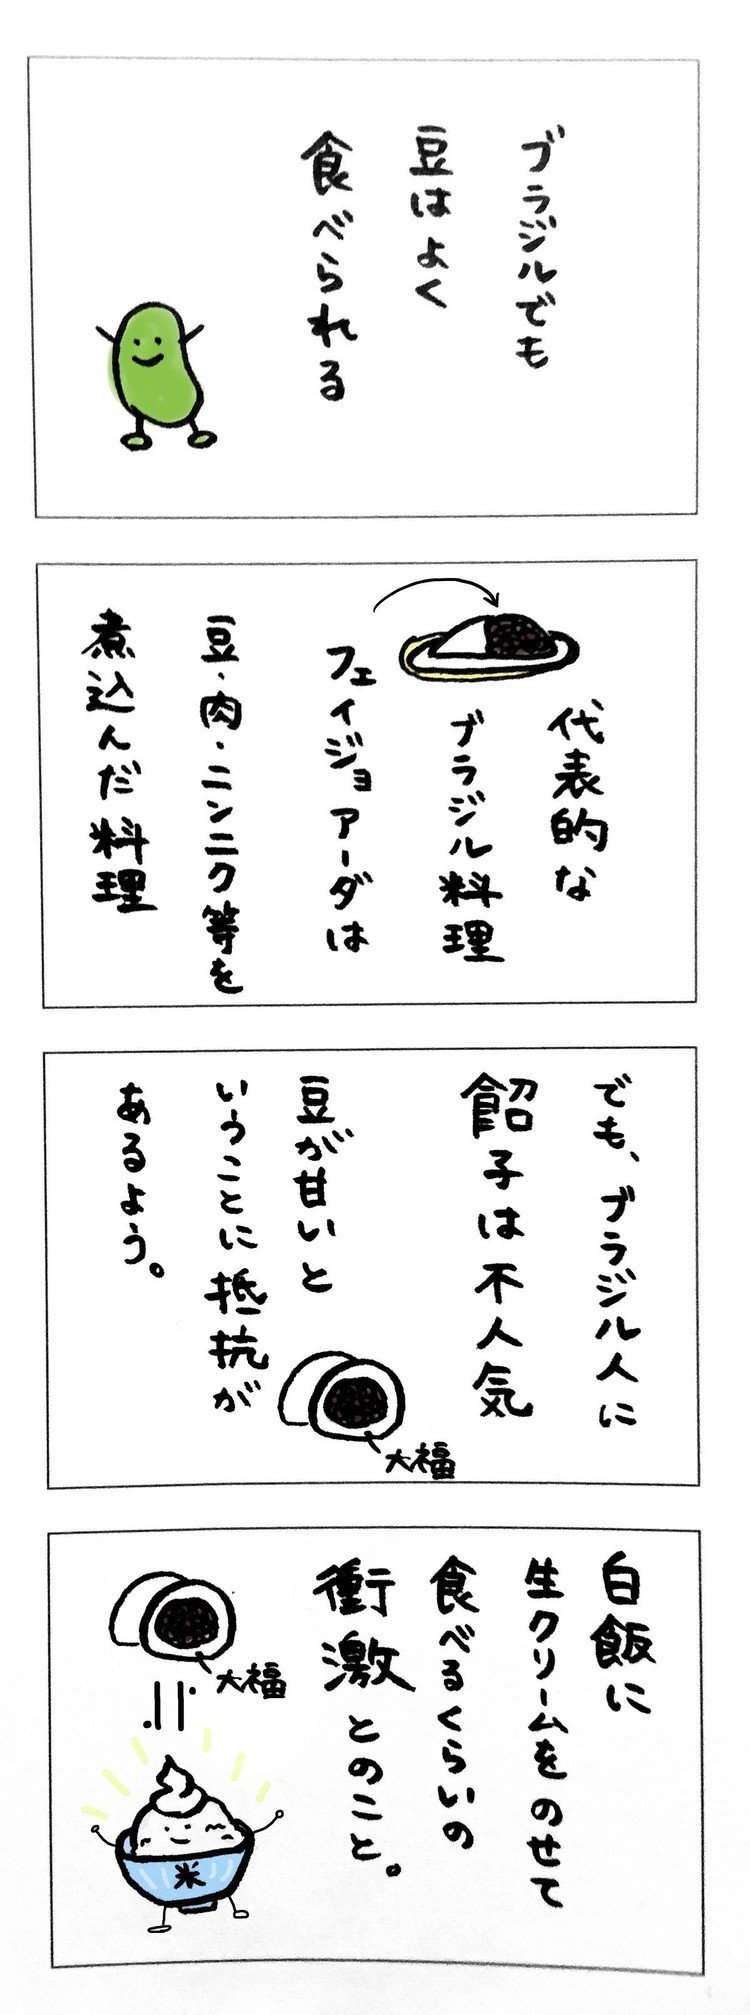 ブラジルでも
豆はよく
食べられる
代表的な
ブラジル料理
フェイジョアーダは
豆・肉・ニンニク等を
煮込んだ料理
でも、ブラジル人に
餡子は不人気
豆が甘いと
いうことに抵抗が
あるよう。
大福
白飯に
生クリームをのせて
食べるくらいの
衝激とのこと。
大福
米